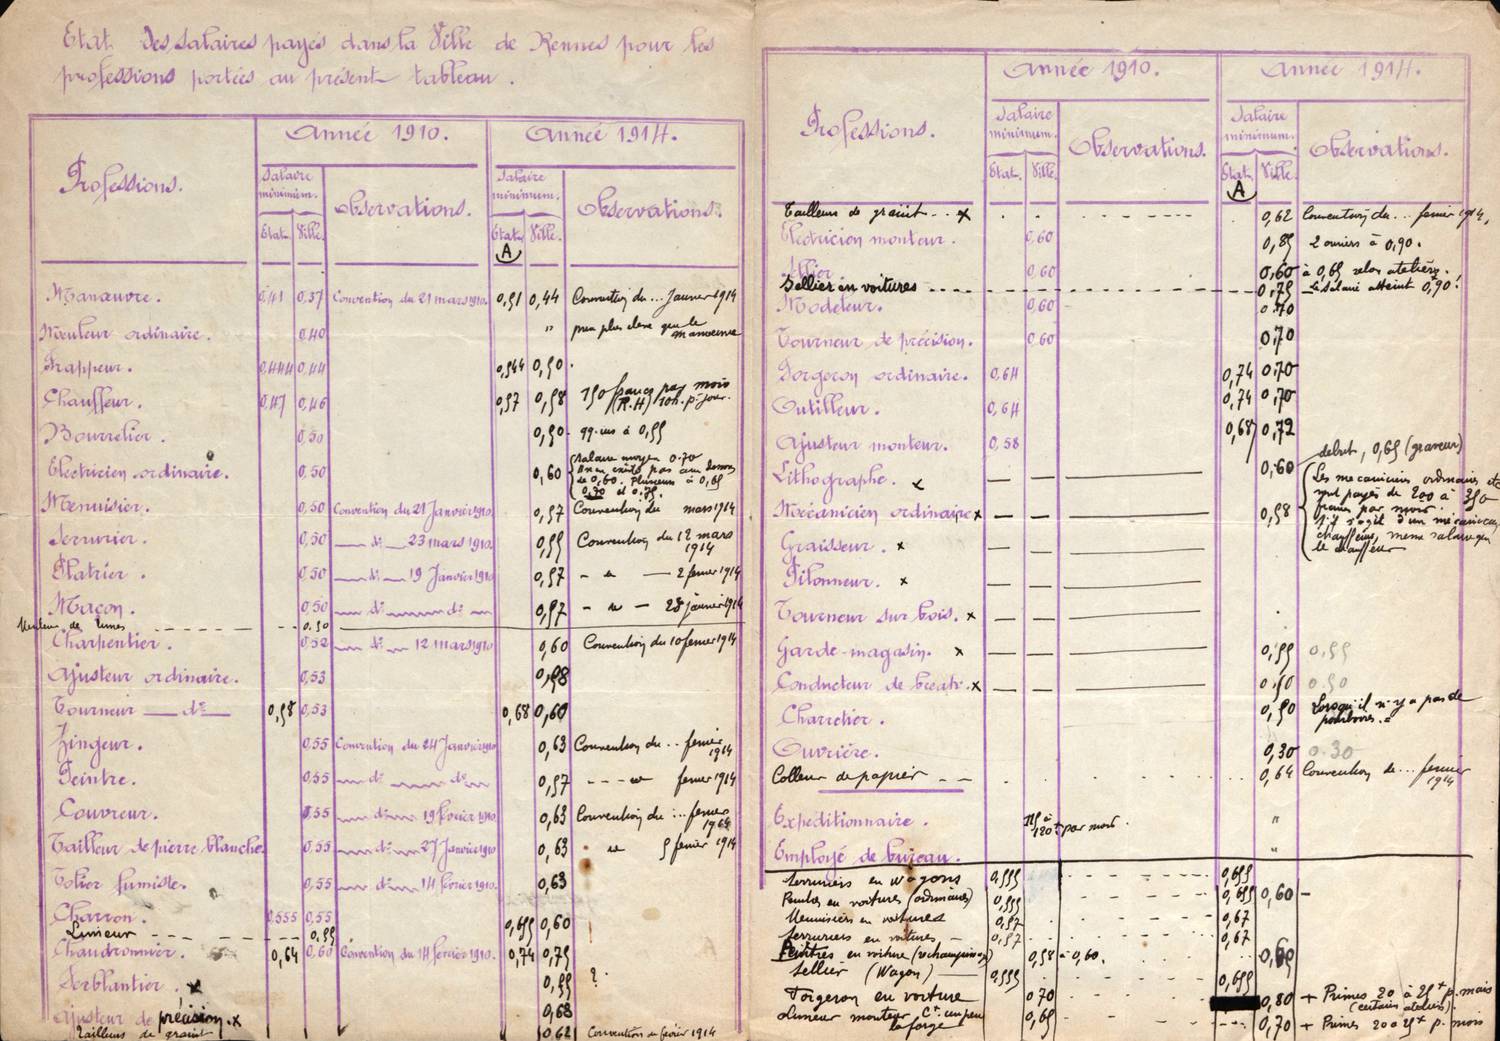 Etat des salaires payés dans la Ville de Rennes pour les
professions portées au présent tableau.
Professions. Année 1910. Année 1914.
Salaire minimum. Observations. Salaire minimum. Observations.
Etat. Ville. Etat. Ville.
A
Manœuvre. 0,41 0,37 Convention du 21 mars 1910. 0,51 0,44 Convention du ... Janvier 1914
Meuleur ordinaire. 0,40 " peu plus élevé que le
manœuvre
Frappeur. 0,444 0,44 0,544 0,50.
Chauffeur. 0,47 0,46 0,57 0,58 150 francs par mois
(R.H) 10h. p. jour.
Bourrelier. 0,50 0,50 - qq. uns à 0,55
Electricien ordinaire. 0,50 0,60 Salaire moyen 0.70
Il n'en existe pas au dessous
de 0,60. Plusieurs à 0,65
0,70 et 0,75.
Menuisier. 0,50 Convention du 21 Janvier 1910. 0,57 Convention du mars 1914
Serrurier. 0,50 — do — 23 mars 1910. 0,55 Convention du 12 mars
1914
Platrier. 0,50 — do — 19 Janvier 1910 0,57 - " — 2 fevrier 1914
Maçon. 0,50 — do — do — 0,57 - " — 28 janvier 1914
de limes - - - 0.50
Charpentier. 0,52 — do — 12 mars 1910 0,60 Convention du 10 fevrier 1914
Ajusteur ordinaire. 0,53 0,58
Tourneur — do — 0,58 0,53 0,68 0,60
Zingeur. 0,55 Convention du 24 Janvier 1910 0,63 Convention du .. fevrier
1914
Peintre. 0,55 — do — do — 0,57 - - - " fevrier 1914
Couvreur. 0,55 — do — 19 février 1910 0,63 Convention du ... fevrier
1914
Tailleur de pierre blanche. 0,55 — do — 27 Janvier 1910 0,63 " 5 fevrier 1914
Tolier fumiste. 0,55 — do — 14 février 1910. 0,63
Charron. 0,555 0,55 0,655 0,60
Limeur - - - 0,55
Chaudronnier. 0,64 0,60 Convention du 14 février 1910. 0,74 0,75
Ferblantier. x 0,55 ?
Ajusteur de précision. x 0,68
Tailleurs de granit 0,62 Convention du février 1914
Professions. Année 1910. Année 1914.
Salaire minimum. Observations. Salaire minimum. Observations.
Etat. Ville. Etat. Ville.
A
Tailleurs de granit... x 0,62 Convention du ... fevrier 1914,
Electricien monteur. 0,60 0,85 2 ouvriers à 0,90.
Sellier 0,60 0,60 à 0,65 selon ateliers.
Sellier en voitures - - - 0,75 - Le salaire atteint 0,90!
Modeleur. 0,60 0.70
Tourneur de précision. 0,60 0,70
Forgeron ordinaire. 0,64 0,74 0,70
Outilleur. 0,64 0,74 0,70
Ajusteur monteur. 0,58 0,68 0,72
Lithographe. x — — — 0,60 debut, 0,65 (graveur)
Mécanicien ordinaire x — — — 0,58 Les mecaniciens ordinaires etc
sont payés de 200 à 250
francs par mois.
S'il s'agit d'un mécanicien
chauffeur, meme salaire que
le chauffeur
Graisseur. x — — —
Pilonneur. x — — —
Tourneur sur bois. x — — —
Garde-magasin. x — — — 0,55 0,55
Conducteur de x — — — 0,50 0.50
Charretier. 0,50 Lorsqu'il n'y a pas de
pourboires.
Ouvrière. 0,30 0.30
Colleur de papier - - 0,64 Convention de ... fevrier
1914
Expéditionnaire. 115 à
120 f par mois. "
Employé de bureau. "
Serruriers en wagons 0,555 0,655
Peintres en voitures (ordinaires) 0,555 0,655 0,60 -
Menuisiers en voitures 0,57 0,67
Serruriers en voitures - 0,57 0,67
Peintres en voiture (rechampisseurs) 0,58 - 0,60. 0,60
Sellier (Wagon) — 0,555 0,655
Forgeron en voiture 0,70 0,80 + Primes 20 à 25 f p. mois
(certains ateliers).
Limeur monteur Ct. un peu
la forge 0,65 0,70 + Primes 20 à 25 f p. mois